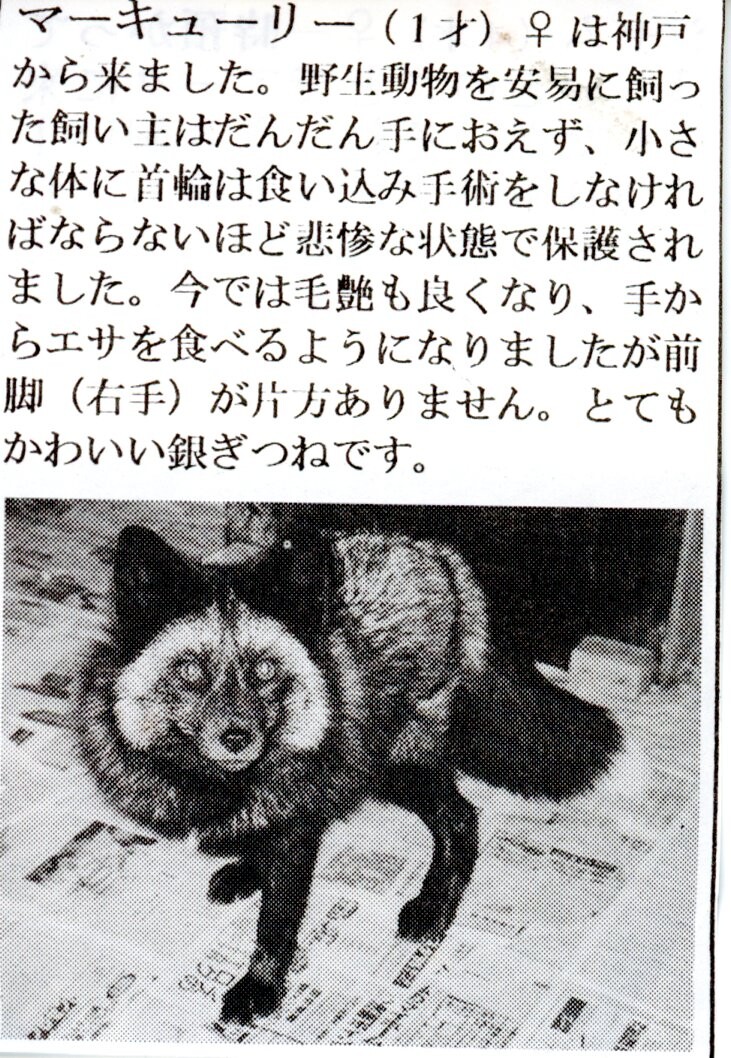 マーキューリー（１才）♀は神戸
から来ました。野生動物を安易に飼っ
た飼い主はだんだん手におえず、小さ
な体に首輪は食い込み手術をしなけれ
ばならないほど悲惨な状態で保護され
ました。今では毛艶も良くなり、手か
らエサを食べるようになりましたが前
脚（右手）が片方ありません。とても
かわいい銀ぎつねです。